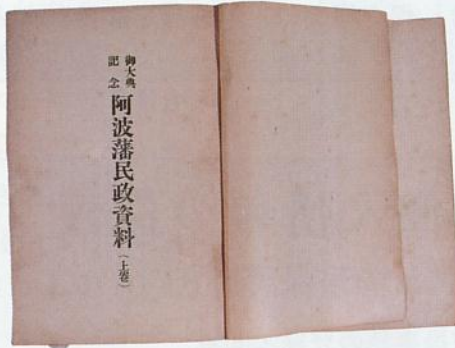 御大典
記念
阿波藩民政資料（上巻）